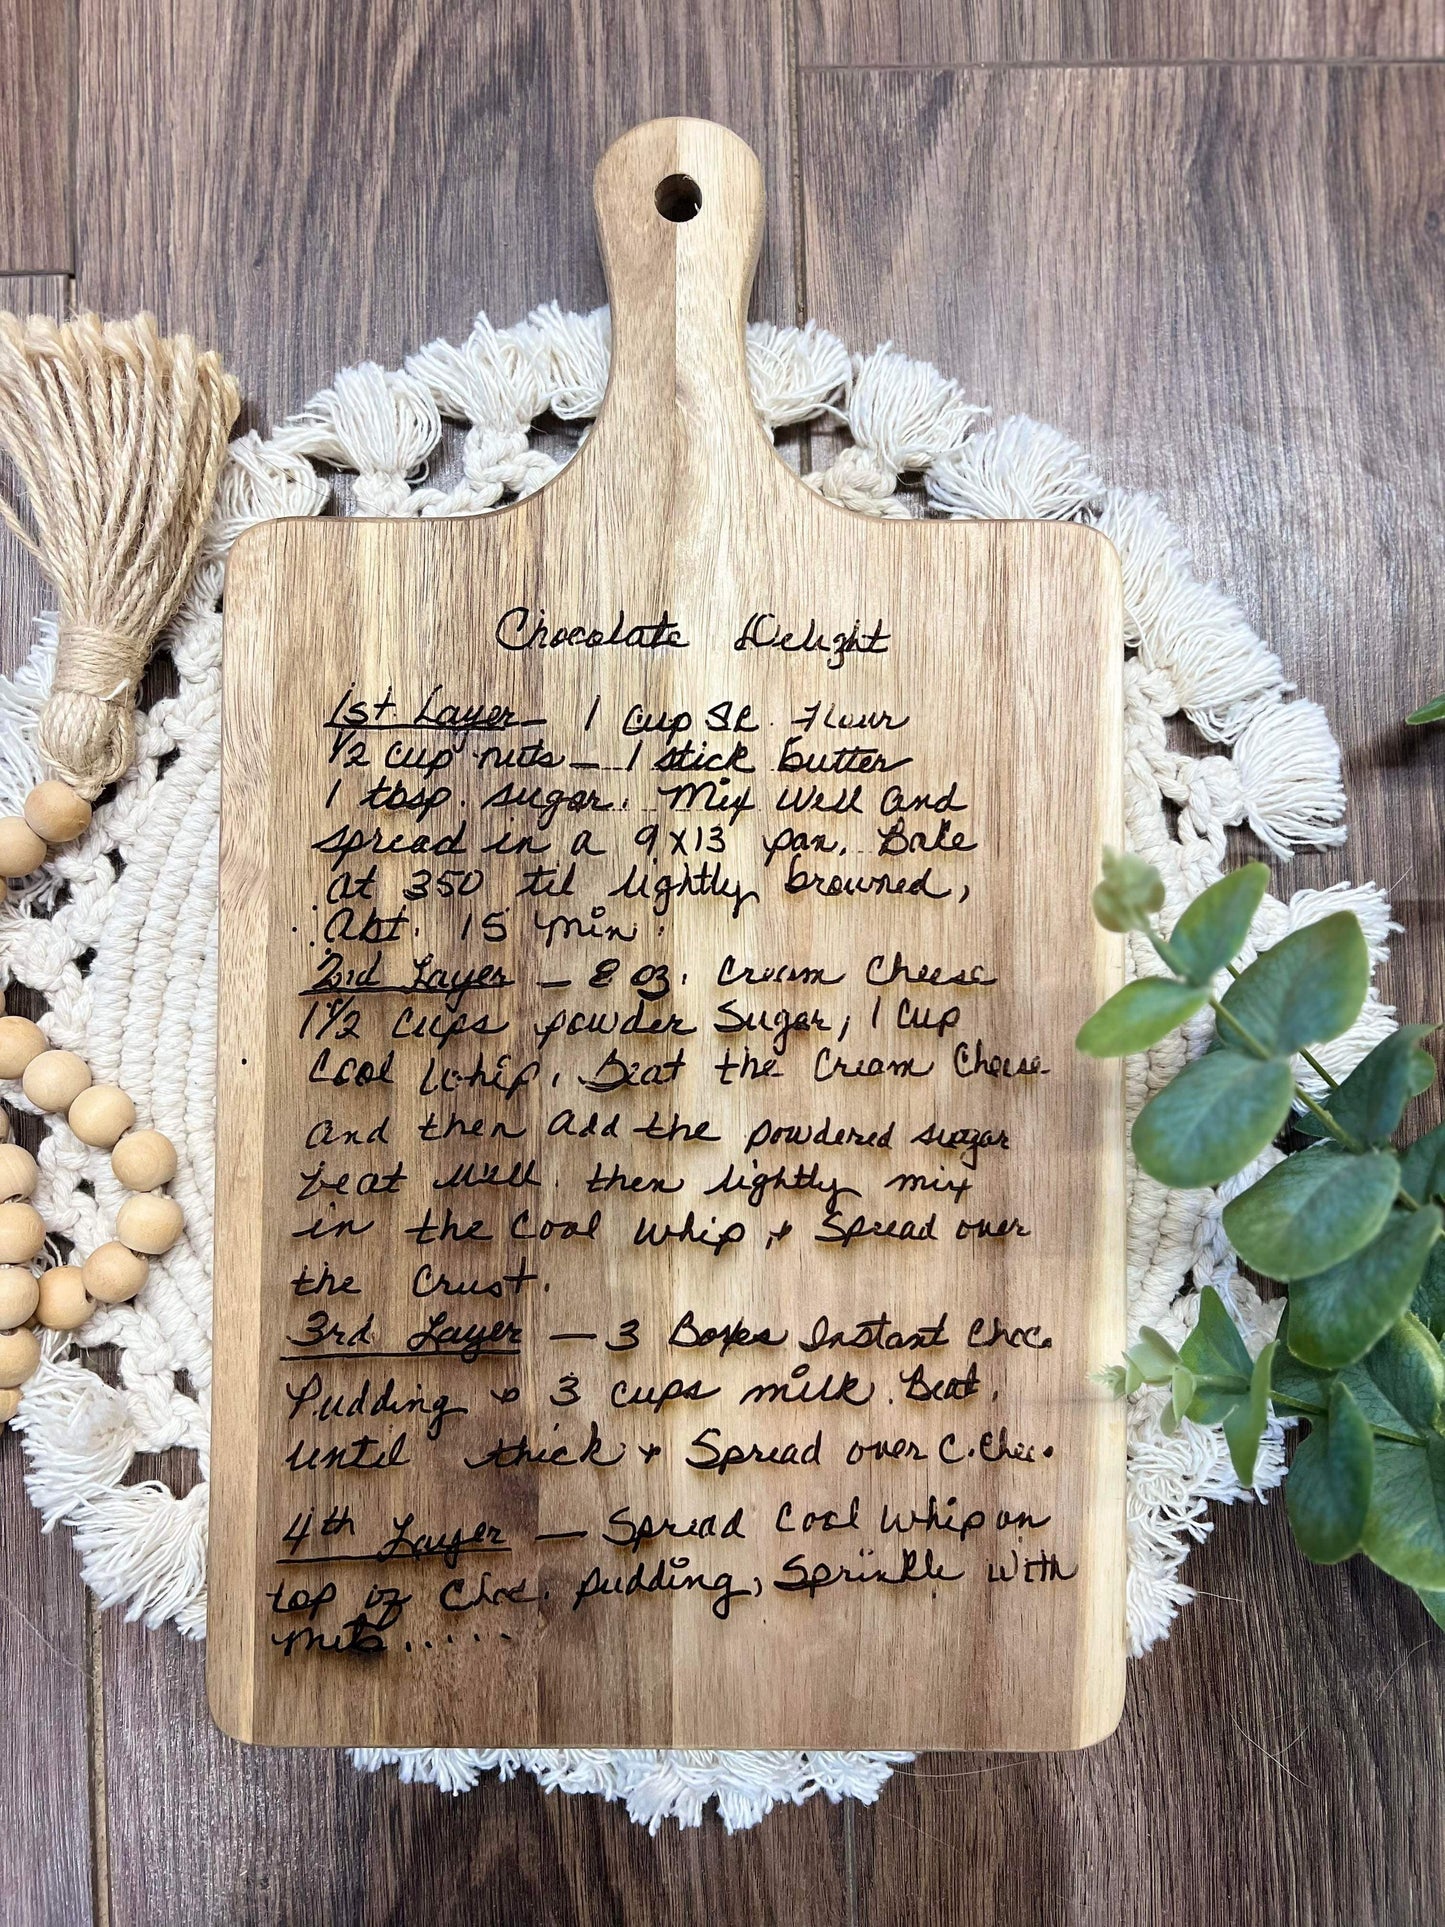 Chocolate Delight
1st Layer - 1 cup SR. Flour
1/2 cup nuts - 1 stick butter
1 tbsp. sugar. Mix well and
spread in a 9x13 pan. Bake
at 350 til lightly browned,
Abt. 15 min.
2nd Layer - 8 oz. Cream Cheese
1 1/2 cups powder Sugar, 1 cup
Cool Whip. Beat the Cream Cheese
and then add the powdered sugar
beat well. then lightly mix
in the Cool Whip + Spread over
the Crust.
3rd Layer - 3 Boxes Instant Choc.
Pudding + 3 cups milk. Beat
until thick + Spread over C. Chee.
4th Layer - Spread Cool Whip on
top of Choc. pudding, Sprinkle with
nuts.....